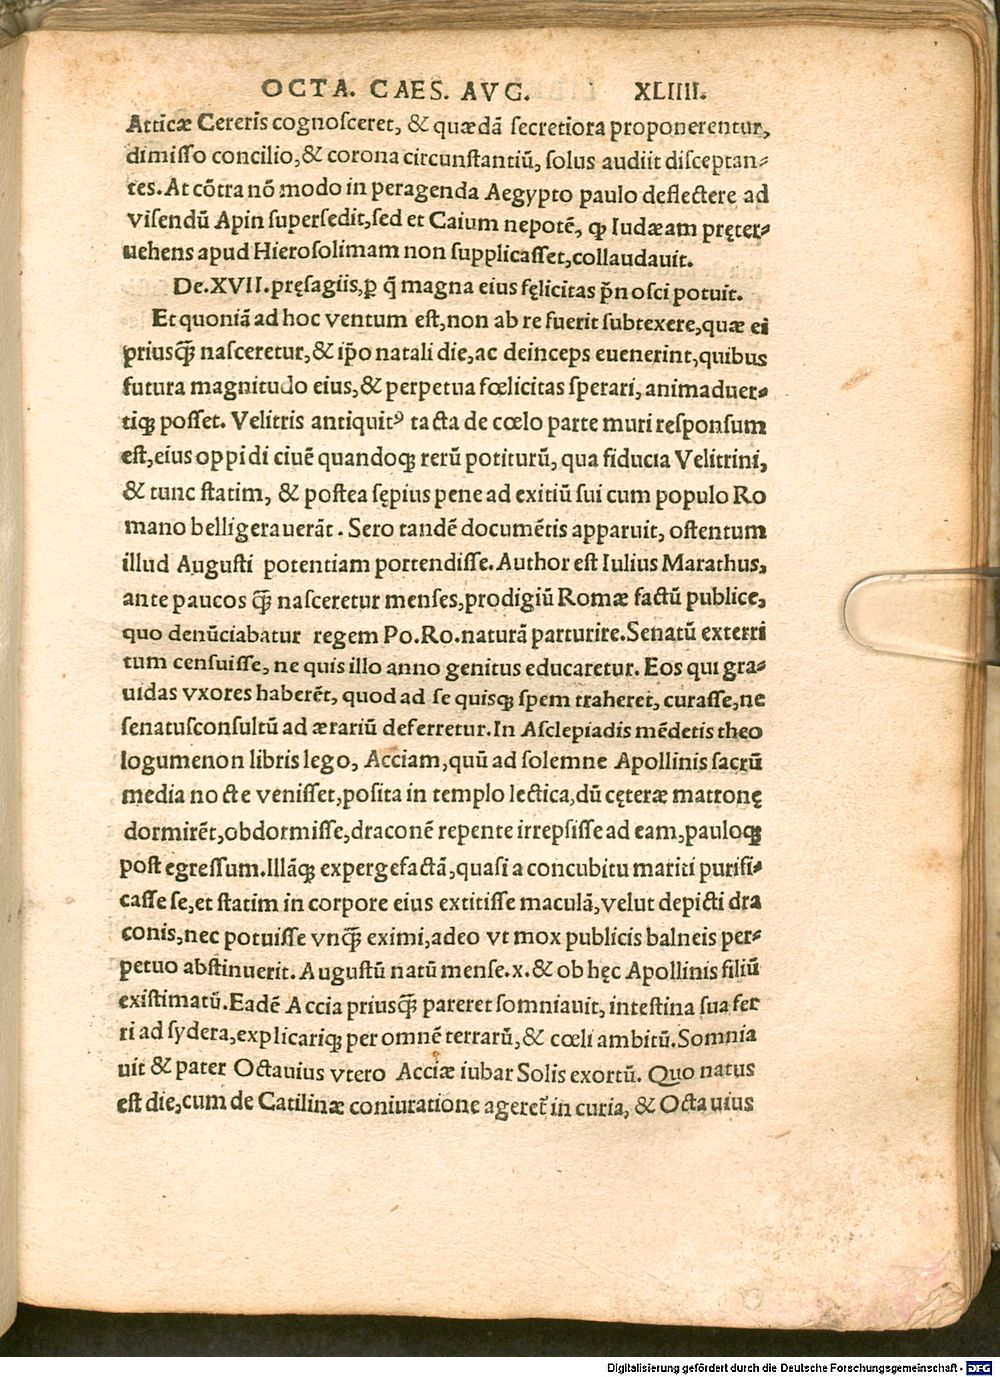 OCTA. CAES. AVG. XLIIII.
Atticæ Cereris cognosceret, & quædã secretiora proponerentur,
dimisso concilio,& corona circunstantiũ, solus audiit disceptan-
tes. At cõtra nõ modo in peragenda Aegypto paulo deflectere ad
visendũ Apin supersedit,sed et Caium nepotẽ, ꝙ Iudæam pręter-
uehens apud Hierosolimam non supplicasset,collaudauit.
De.XVII.pręsagiis,ꝑ q̃ magna eius fęlicitas p̃nosci potuit.
Et quoniã ad hoc ventum est,non ab re fuerit subtexere,quæ ei
priusq̃ nasceretur,& ip̃o natali die,ac deinceps euenerint,quibus
futura magnitudo eius,& perpetua fœlicitas sperari, animaduer-
tiqꝫ posset. Velitris antiquitꝰ tacta de cœlo parte muri responsum
est,eius oppidi ciuẽ quandoqꝫ rerũ potiturũ, qua fiducia Velitrini,
& tunc statim, & postea sępius pene ad exitiũ sui cum populo Ro
mano belligerauerãt. Sero tandẽ documẽtis apparuit, ostentum
illud Augusti potentiam portendisse. Author est Iulius Marathus,
ante paucos q̃ nasceretur menses,prodigiũ Romæ factũ publice,
quo denũciabatur regem Po.Ro.naturã parturire.Senatũ exterri
tum censuisse, ne quis illo anno genitus educaretur. Eos qui gra-
uidas vxores haberẽt, quod ad se quisqꝫ spem traheret, curasse,ne
senatusconsultũ ad ærariũ deferretur.In Asclepiadis mẽdetis theo
logumenon libris lego, Acciam,quũ ad solemne Apollinis sacrũ
media nocte venisset,posita in templo lectica,dũ cęteræ matronę
dormirẽt,obdormisse,draconẽ repente irrepsisse ad eam,pauloqꝫ
post egressum.Illãqꝫ expergefactã,quasi a concubitu mariti purifi-
casse se,et statim in corpore eius extitisse maculã,velut depicti dra
conis,nec potuisse vnq̃ eximi,adeo vt mox publicis balneis per-
petuo abstinuerit. Augustũ natũ mense.x.& ob hęc Apollinis filiũ
existimatũ.Eadẽ Accia priusq̃ pareret somniauit, intestina sua fer
ri ad sydera,explicariqꝫ per omnẽ terrarũ,& cœli ambitũ.Somnia
uit & pater Octauius vtero Acciæ iubar Solis exortũ. Quo natus
est die,cum de Catilinæ coniuratione agereť in curia, & Octauius
Digitalisierung gefördert durch die Deutsche Forschungsgemeinschaft - DFG